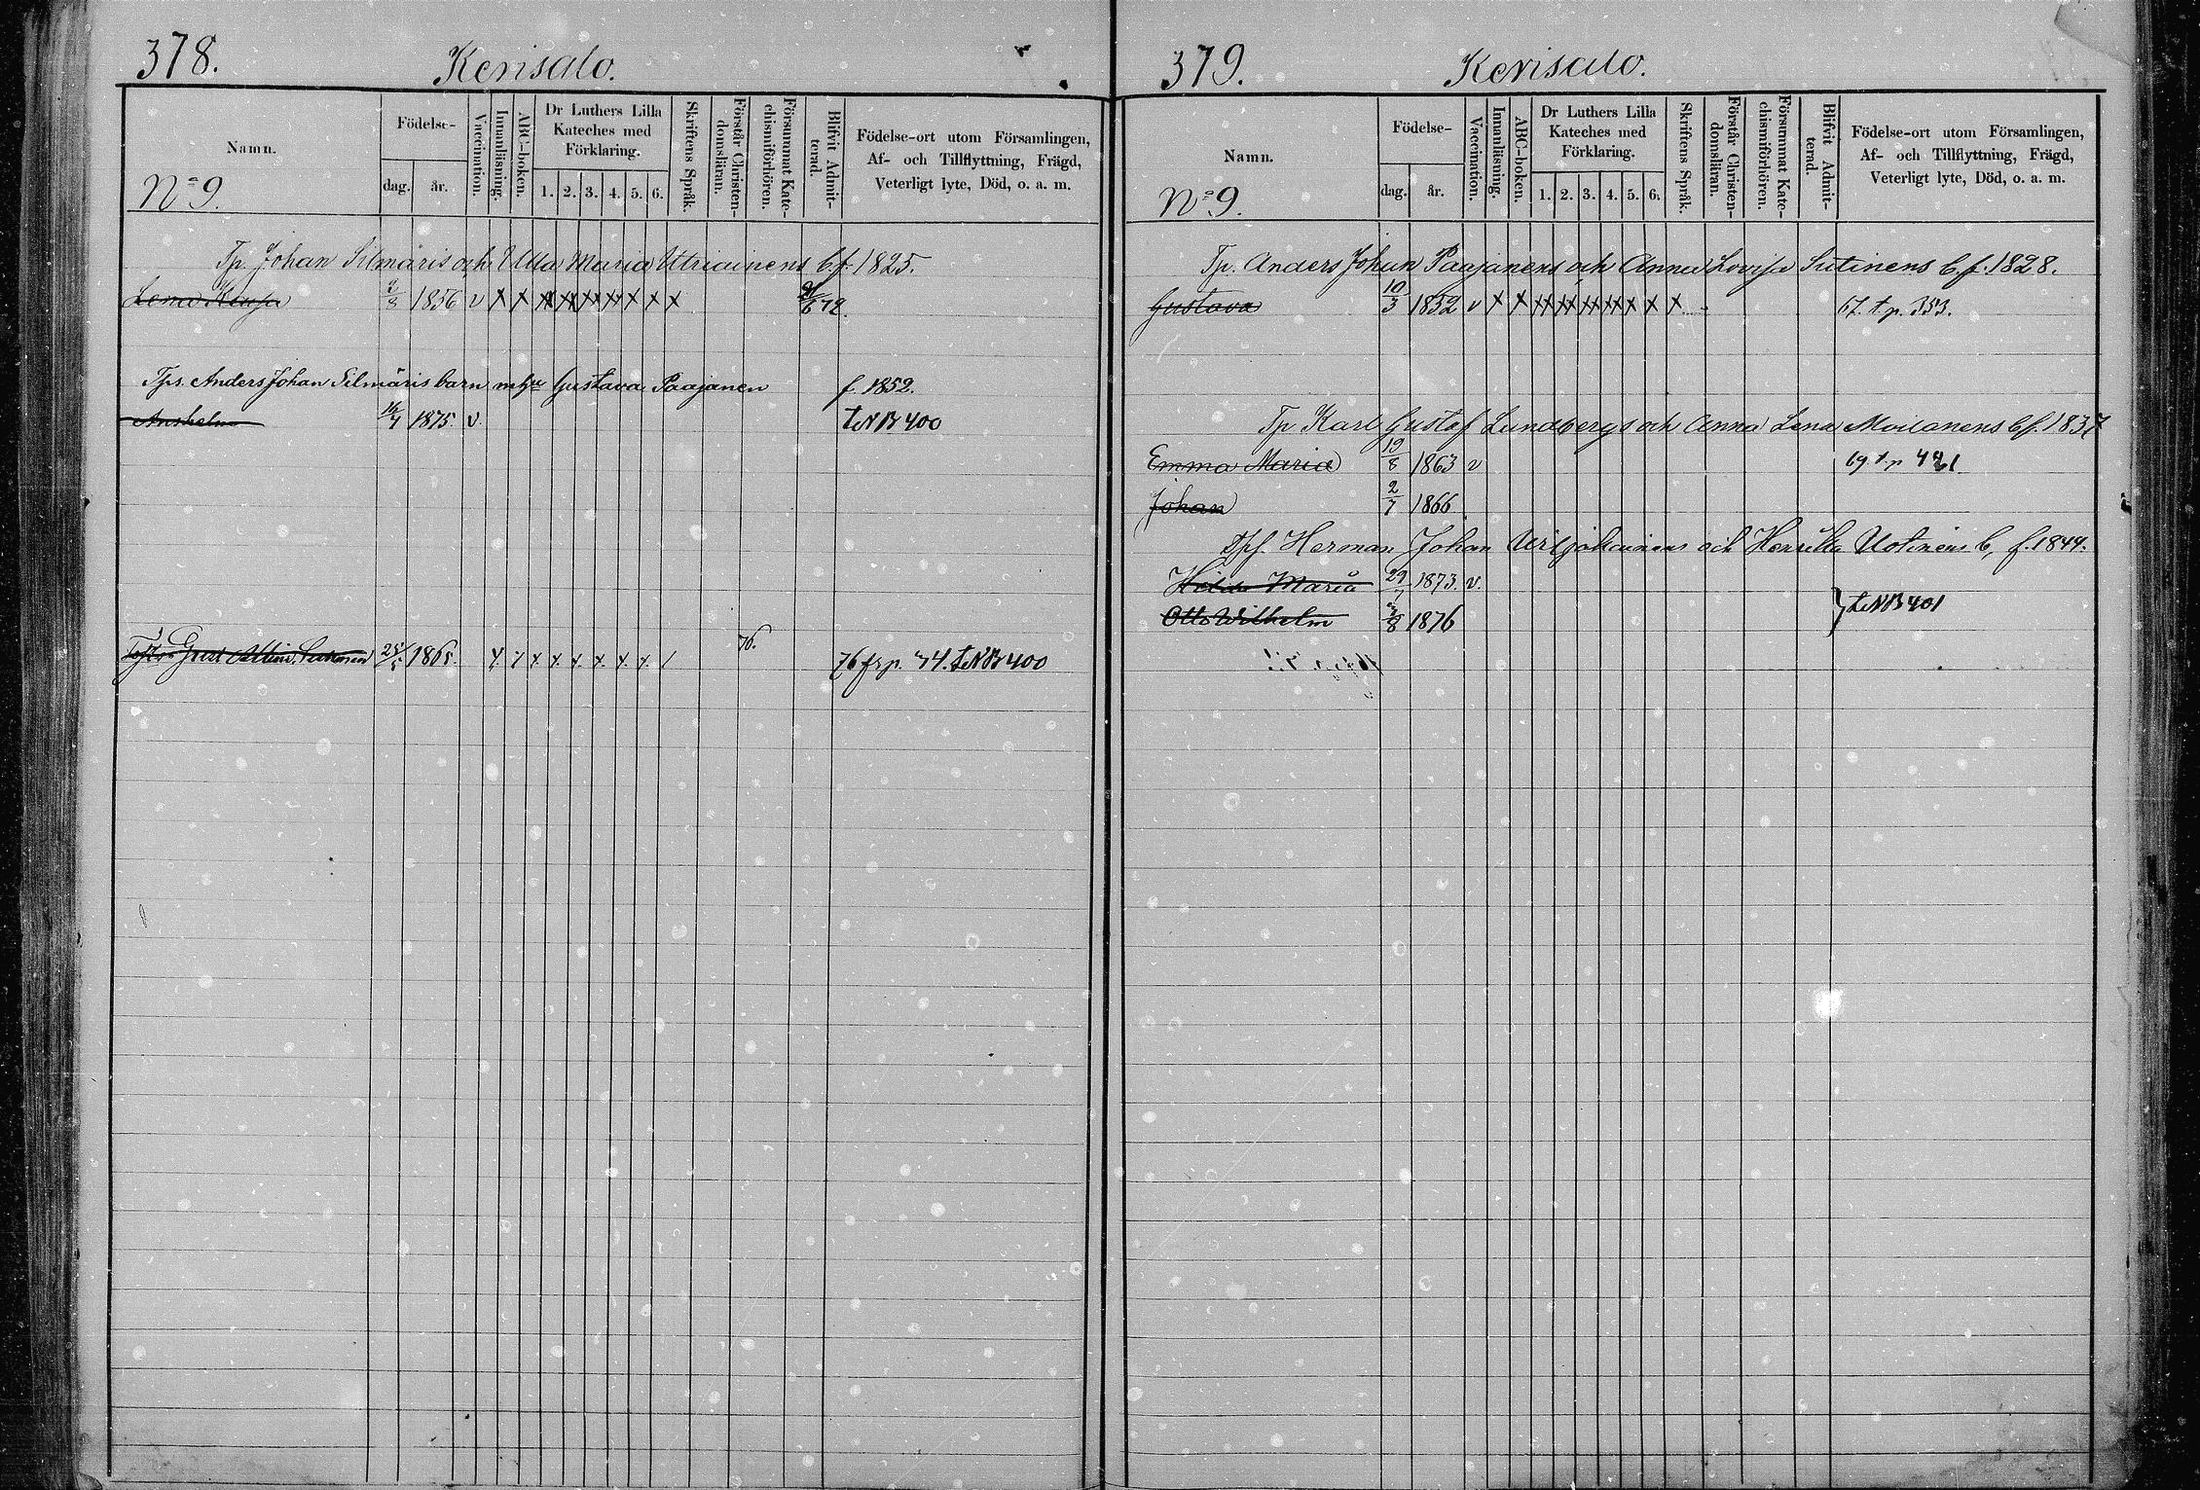 378. Kerisalo.
Namn. Födelse- dag. år. Vaccination. Innanläsning. ABC-boken. Dr Luthers Lilla Kateches med Förklaring. 1. 2. 3. 4. 5. 6. Skriftens Språk. Förstår Christendomsläran. Försummat Katechismiförhören. Blifvit Admitterad. Födelse-ort utom Församlingen, Af- och Tillflyttning, Frägd, Veterligt lyte, Död, o. a. m.
No 9.
Tp. Johan Silmäris och Ulla Maria Utriainens b. f. 1825.
Lena 1856 v x x x x x x x x x
Tps. Anders Johan Silmäris barn m hu Gustava Paajanen f. 1852.
Anshelm 1875. v. t. NB 400
Gust Albin 25/5 1865. x x x x x x x x 76. 76 fr p. 74. t. NB 400
379. Kerisalo.
Namn. Födelse- dag. år. Vaccination. Innanläsning. ABC-boken. Dr Luthers Lilla Kateches med Förklaring. 1. 2. 3. 4. 5. 6. Skriftens Språk. Förstår Christendomsläran. Försummat Katechismiförhören. Blifvit Admitterad. Födelse-ort utom Församlingen, Af- och Tillflyttning, Frägd, Veterligt lyte, Död, o. a. m.
No 9.
Tp. Anders Johan Paajanens och Anna Lovisa Sutinens b. f. 1828.
Gustava 10/3 1852 v x x x x x x x x x 67. t. p. 353.
Tp Karl Gustaf Lundbergs och Anna Lena Moilanens b f. 1837
Emma Maria 19/8 1863 v 69. t. p
Johan 2/7 1866
Herman Johan och Henrika Uotinens b, f. 1844.
Maria 29/7 1873. v.
Otto Wilhelm 1876 } t. NB 401